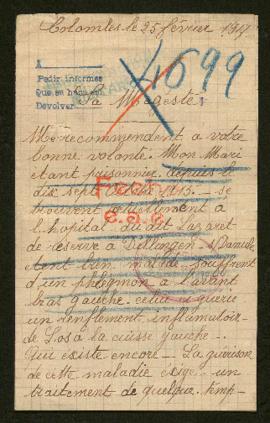 Colombes le 25 février 1917
A
Pedir informes
Que se han em
Devolver
4699
Sa Majesté
Me recommendent a votre
bonne volonté. Mon Mari
etant prisonnier depuis le
dix sept 1915. se
trouvent actuellement à
l'hopital du dit lazaret
de réserve a Dillingen s/Danube
etant bien malade souffrent
d'un phlegmon a l'avant
bras gauche. celui ci guerie
un renflement inflamatoir
de Los à la cuisse gauche
Qui existe encore. La guérison
de cette maladie exige un
traitement de quelque temp-
Ficha